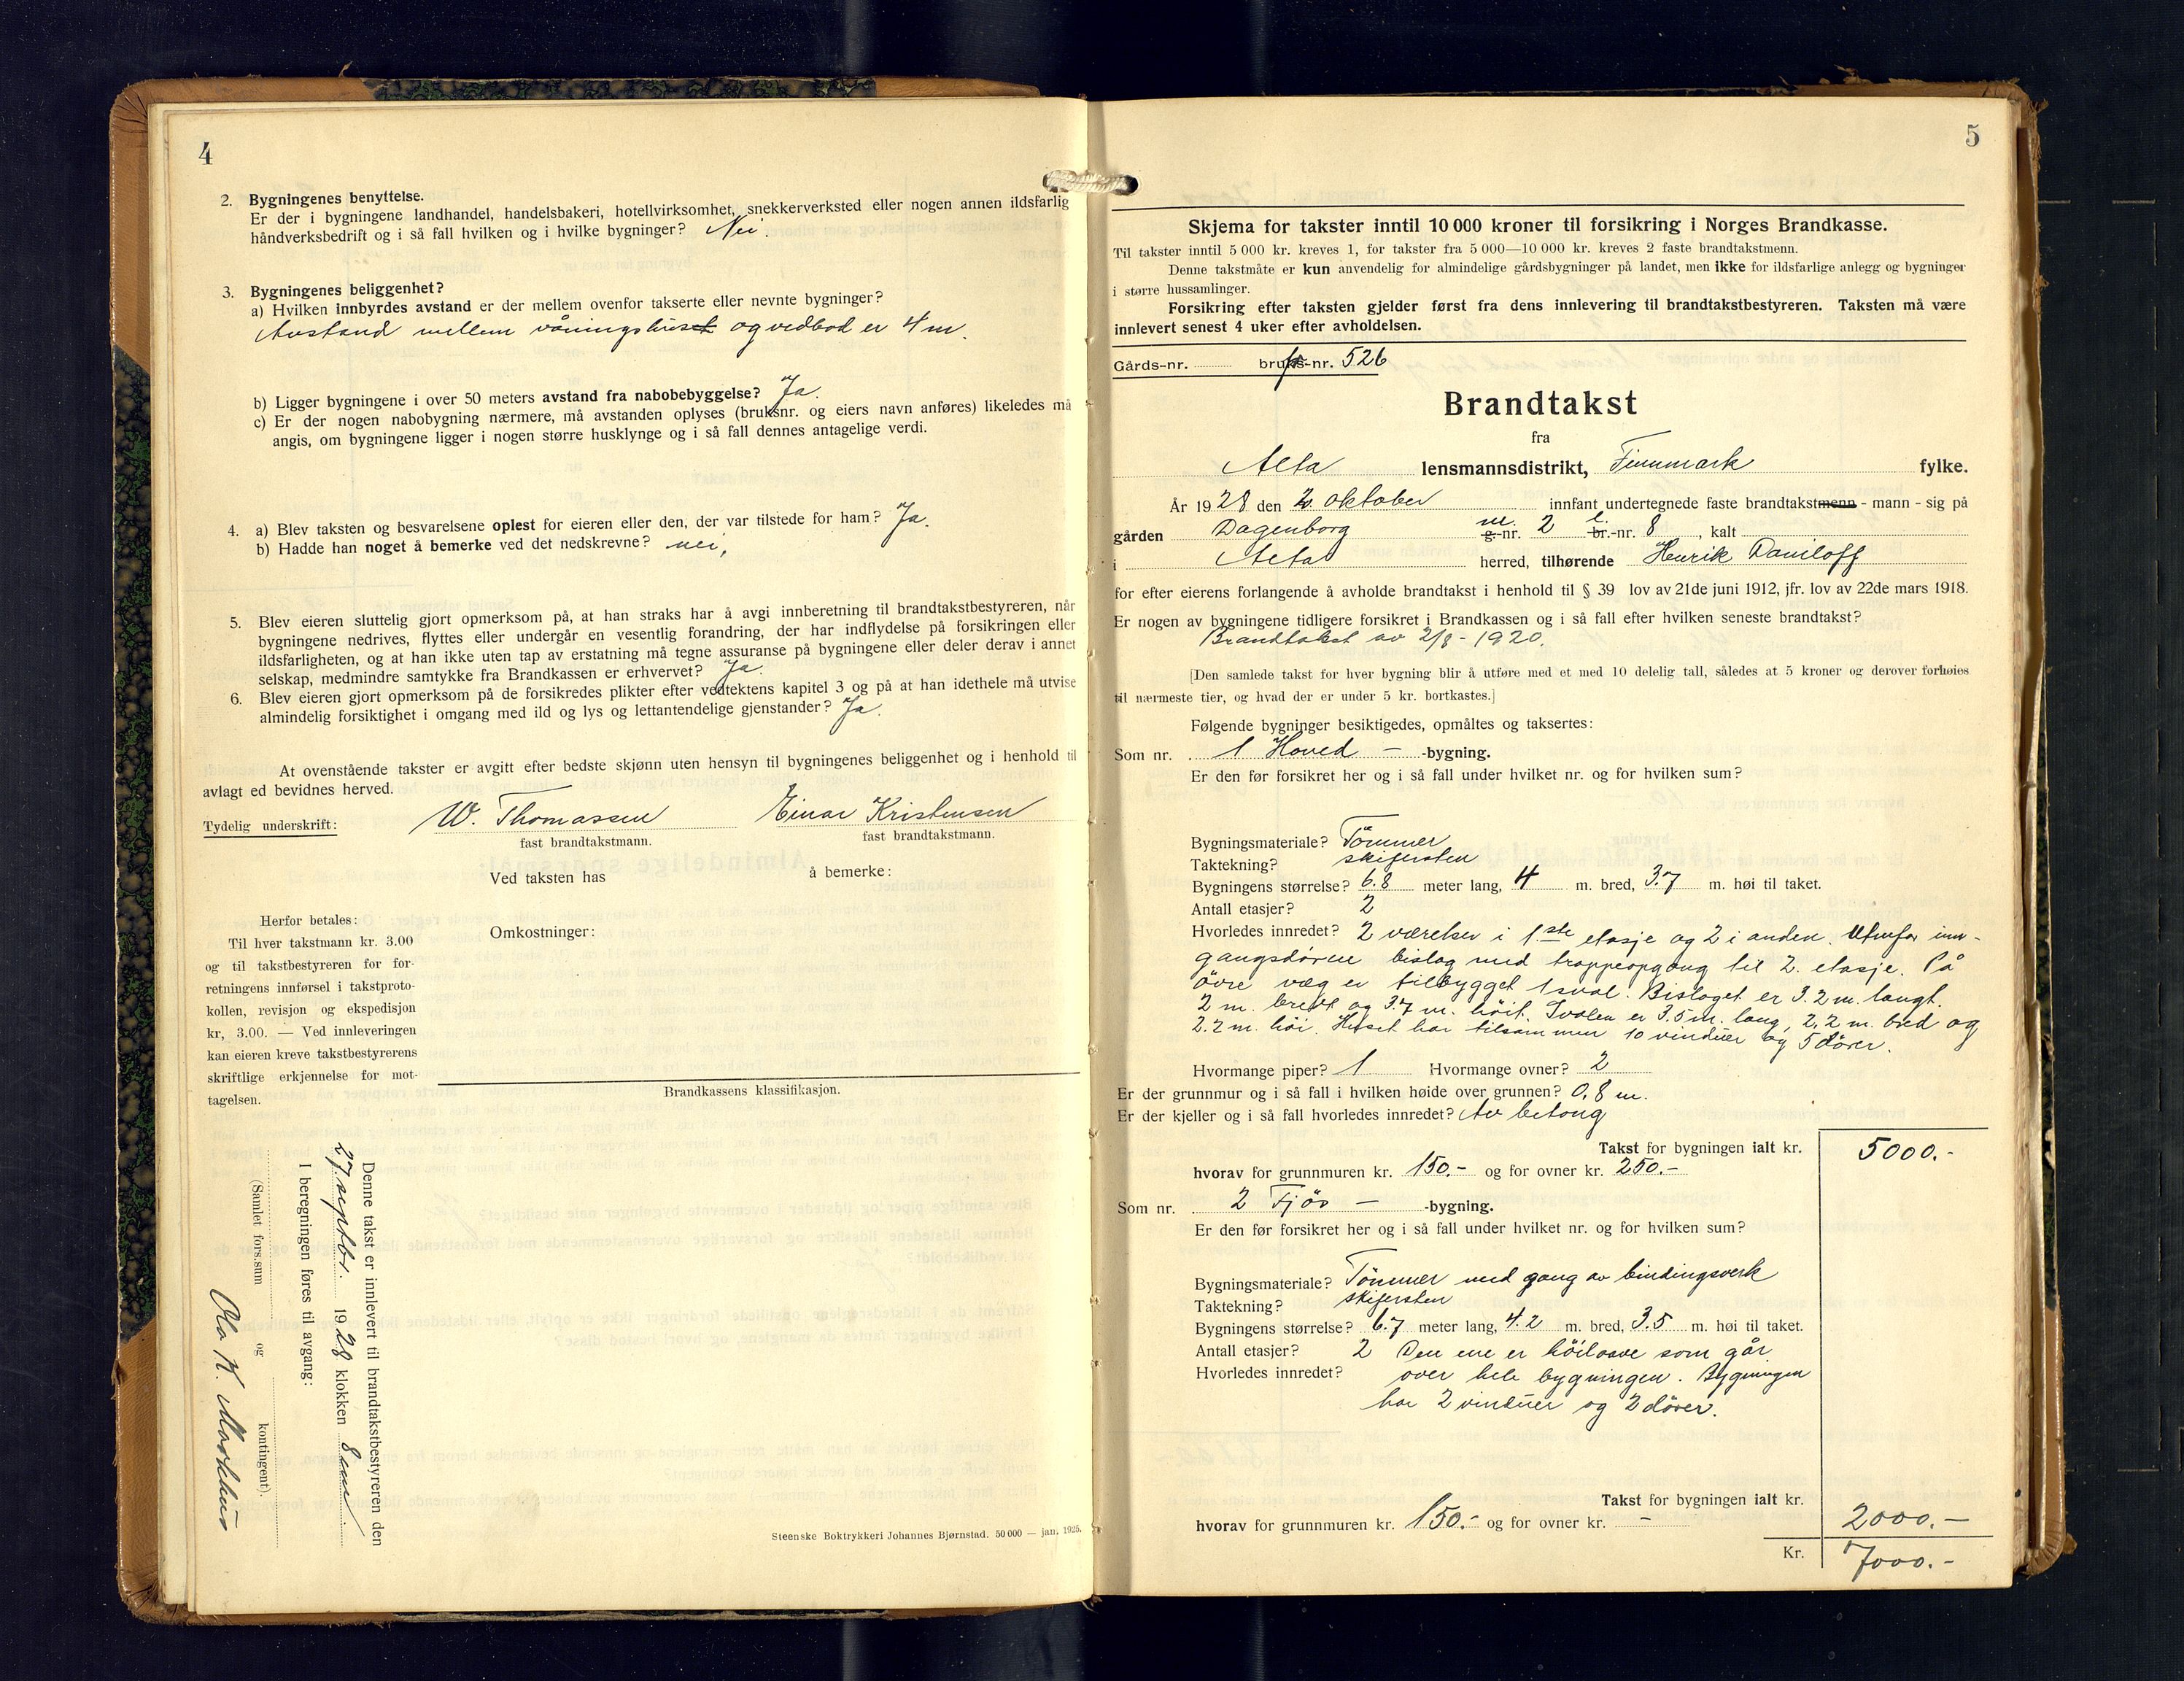 4
2. Bygningenes benyttelse.
Er der i bygningene landhandel, handelsbakeri, hotellvirksomhet, snekkerverksted eller nogen annen ildsfarlig
håndverksbedrift og i så fall hvilken og i hvilke bygninger? Nei.
3. Bygningenes beliggenhet?
a) Hvilken innbyrdes avstand er der mellem ovenfor takserte eller nevnte bygninger?
Avstand mellem våningshuset og vedbod er 4 m.
b) Ligger bygningene i over 50 meters avstand fra nabobebyggelse? Ja.
c) Er der nogen nabobygning nærmere, må avstanden oplyses (bruksnr. og eiers navn anføres) likeledes må
angis, om bygningene ligger i nogen større husklynge og i så fall dennes antagelige verdi.
4. a) Blev taksten og besvarelsene oplest for eieren eller den, der var tilstede for ham? Ja.
b) Hadde han noget å bemerke ved det nedskrevne? nei,
5. Blev eieren sluttelig gjort opmerksom på, at han straks har å avgi innberetning til brandtakstbestyreren, når
bygningene nedrives, flyttes eller undergår en vesentlig forandring, der har indflydelse på forsikringen eller
ildsfarligheten, og at han ikke uten tap av erstatning må tegne assuranse på bygningene eller deler derav i annet
selskap, medmindre samtykke fra Brandkassen er erhvervet? Ja.
6. Blev eieren gjort opmerksom på de forsikredes plikter efter vedtektens kapitel 3 og på at han idethele må utvise
almindelig forsiktighet i omgang med ild og lys og lettantendelige gjenstander? Ja.
At ovenstående takster er avgitt efter bedste skjønn uten hensyn til bygningenes beliggenhet og i henhold til
avlagt ed bevidnes herved.
Tydelig underskrift: W. Thomassen Einar Kristensen
fast brandtakstmann. fast brandtakstmann.
Ved taksten has å bemerke:
Herfor betales:
Til hver takstmann kr. 3.00
og til takstbestyreren for for-
retningens innførsel i takstproto-
kollen, revisjon og ekspedisjon
kr, 3.00. — Ved innleveringen
kan eieren kreve takstbestyrerens
skriftlige erkjennelse for mot-
tagelsen.
Omkostninger:
Brandkassens klassifikasjon.
Denne takst er innlevert til brandtakstbestyreren den
27. septbr. 1928 klokken 8 em
I beregningen føres til avgang:
(Samlet fors.sum og kontingent).
Ola K.
Steenske Boktrykkeri Johannes Bjørnstad. 50 000 — jan. 1925.
5
Skjema for takster inntil 10 000 kroner til forsikring i Norges Brandkasse.
Til takster inntil 5 000 kr. kreves 1, for takster fra 5 000—10 000 kr. kreves 2 faste brandtakstmenn.
Denne takstmåte er kun anvendelig for almindelige gårdsbygninger på landet, men ikke for ildsfarlige anlegg og bygninger
i større hussamlinger.
Forsikring efter taksten gjelder først fra dens innlevering til brandtakstbestyreren. Taksten må være
innlevert senest 4 uker efter avholdelsen.
Gårds-nr. bruks-nr. 526
Brandtakst
fra
Alta lensmannsdistrikt, Finnmark fylke.
År 1928 den 2. oktober innfant undertegnede faste brandtakstmenn - mann - sig på
gården Dagenborg m. g.-nr. 2 l. br.-nr. 8, kalt
i Alta herred, tilhørende Henrik Daniloff
for efter eierens forlangende å avholde brandtakst i henhold til § 39 lov av 21de juni 1912, jfr. lov av 22de mars 1918.
Er nogen av bygningene tidligere forsikret i Brandkassen og i så fall efter hvilken seneste brandtakst?
Brandtakst av 2/8 - 1920.
[Den samlede takst for hver bygning blir å utføre med et med 10 delelig tall, således at 5 kroner og derover forhøies
til nærmeste tier, og hvad der er under 5 kr. bortkastes.]
Følgende bygninger besiktigedes, opmåltes og taksertes:
Som nr. 1 Hoved — -bygning.
Er den før forsikret her og i så fall under hvilket nr. og for hvilken sum?
Bygningsmateriale? Tömmer
Taktekning? skifersten
Bygningens størrelse? 6.8 meter lang, 4 m. bred, 3.7 m. høi til taket.
Antall etasjer? 2
Hvorledes innredet? 2 værelser i 1.ste etasje og 2 i anden. Utenfor inn-
gangsdøren bislag med trappeopgang til 2. etasje. På
övre væg er tilbygget 1 sval. Bislaget er 3.2 m. langt.
2 m. bredt og 3.7 m. höit. Svalen er 3.5 m. lang, 2.2 m. bred og
2.2 m. höi. Huset har tilsammen 10 vinduer og 5 dörer.
Hvormange piper? 1 Hvormange ovner? 2
Er der grunnmur og i så fall i hvilken høide over grunnen? 0,8 m.
Er der kjeller og i så fall hvorledes innredet? Av betong
Takst for bygningen ialt kr. 5000.-
hvorav for grunnmuren kr. 150.- og for ovner kr. 250.-
Som nr. 2 Fjös — -bygning.
Er den før forsikret her og i så fall under hvilket nr. og for hvilken sum?
Bygningsmateriale? Tömmer med gang av bindingsverk
Taktekning? skifersten
Bygningens størrelse? 6.7 meter lang, 4.2 m. bred, 3.5 m. høi til taket.
Antall etasjer? 2 Den ene er höilaave som går
Hvorledes innredet? over hele bygningen. Bygningen
har 2 vinduer og 2 dörer.
Takst for bygningen ialt kr.
hvorav for grunnmuren kr. 150.- og for ovner kr. - 2000.-
Kr. 7000.-